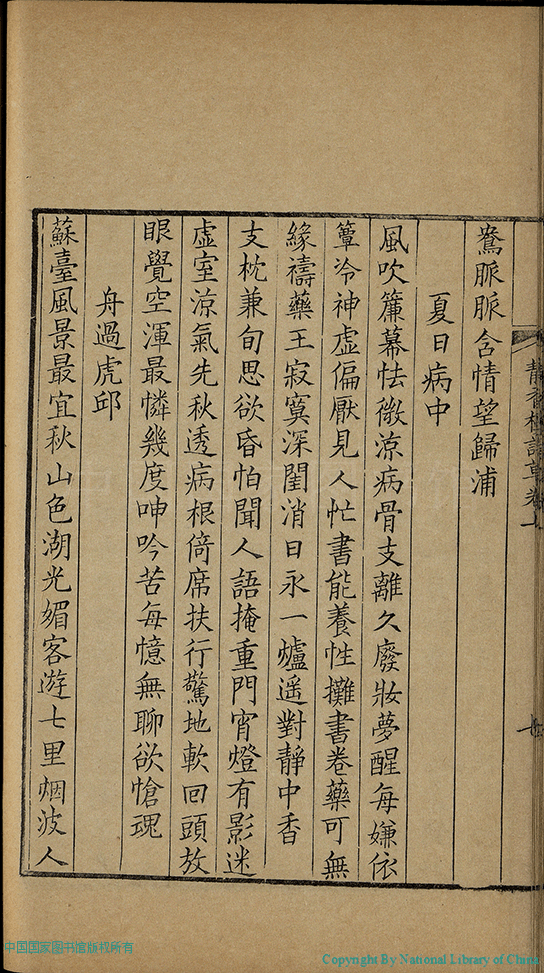 鴦脈脈含情望歸浦
夏日病中
風吹簾幕怯微涼病骨支離久廢妝夢醒每嫌依
簟冷神虛偏厭見人忙書能養性攤書卷藥可無
緣禱藥王寂寞深閨消日永一爐遥對靜中香
支枕兼旬思欲昏怕聞人語掩重門宵燈有影迷
虛室涼氣先秋透病根倚席扶行驚地軟回頭放
眼覺空渾最憐幾度呻吟苦每憶無聊欲愴魂
舟過虎邱
蘇臺風景最宜秋山色湖光媚客遊七里烟波人
中国国家图书馆版权所有
Copyright By National Library of China